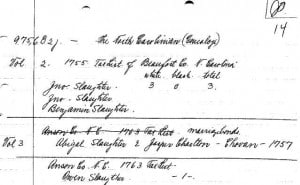 14
975.6 B2j. - the North Carolinian (Genealogy)
Vol 2. 1755 Tax List of Beaufort Co. N. Carolina
white black total
Jno Slaughter 3 0 3.
Jno. Slaughter
Benjamin Slaughter.
Anson Co. N.C. 1763 Tax List marriage bonds.
Vol 3 Abigal Slaughter & Jasper Charlton - Chowan - 1757
Anson Co. N.C. 1763 Tax List
Owen Slaughter - 1 -